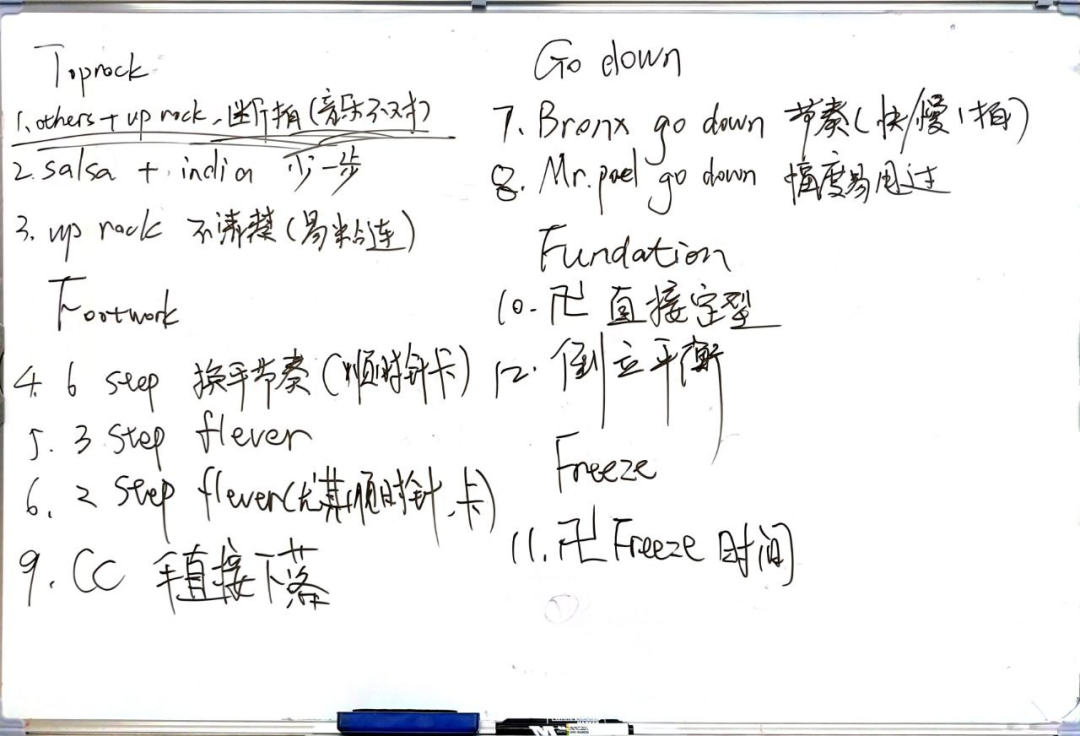 Toprock
1. others + up rock, 断拍(音乐不对)
2. salsa + india 少一步
3. up rock 不清楚(易粘连)
Footwork
4. 6 step 换手节奏(顺时针卡)
5. 3 step flever
6. 2 step flever(尤其顺时针,卡)
9. CC 手直接下落
Go down
7. Bronx go down 节奏(快/慢1拍)
8. Mr. poel go down 幅度易甩过
Fundation
10. 卍 直接定型
12. 倒立平衡
Freeze
11. 卍 Freeze 时间